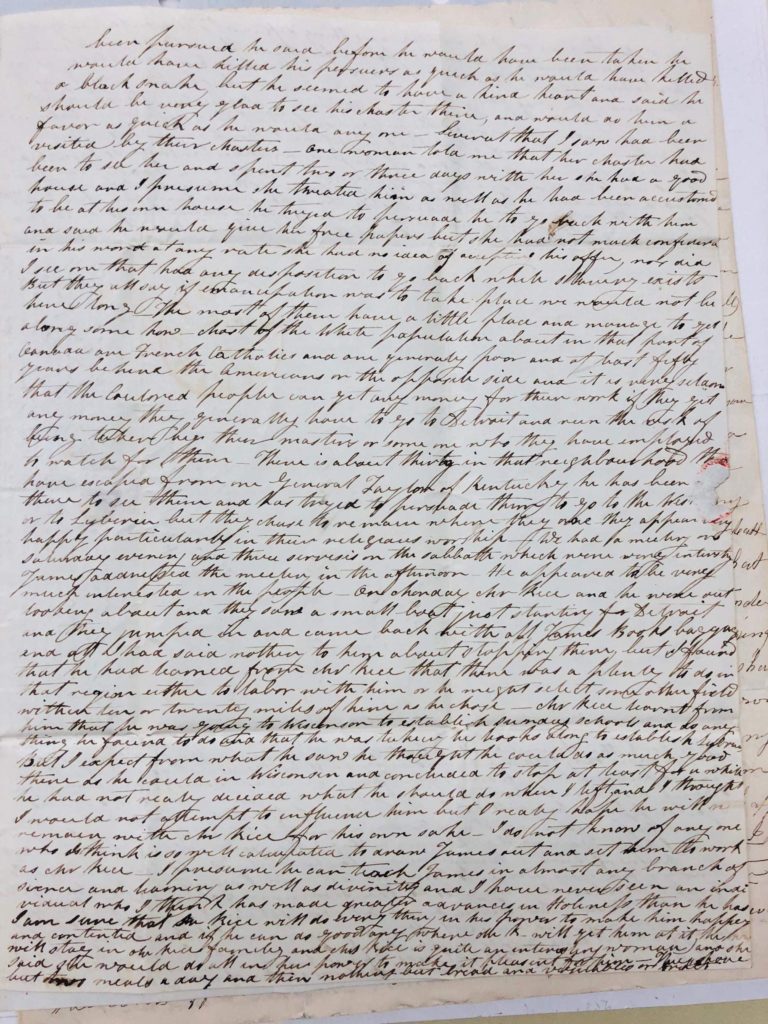 been pursued he said before he would have been taken he
would have killed his pursuers as quick as he would have killed
a black snake, but he seemed to have a kind heart and said he
should be very glad to see his master there, and would do him a
favor as quick as he would any one – Several that I saw had been
visited by their masters – one woman told me that her master had
been to see her and spent two or three days with her she had a good
house and I presume she treated him as well as he had been accustomd
to be at his own house he tryed to persuade he to go back with him
and said he would give her free papers but she had not much confidence
in his word at any rate she had no idea of accepting his offer, nor did
I see one that had any desposition to go back while slavery exists
But they all say if emancipation was to take place we would not be
here long The most of them have a little place and manage to get
along some how – Most of the White population about in that part of
Canada are French Catholics and are generaly poor and at least fifty
years behind the Americans on the opposite side and it is very seldom
that the Coulored people can get any money for their work if they get
any money they generally have to go to Detroit and run the risk of
being taken by their masters or some one who they have employed
to watch for them – There is about thirty in that neighbourhood that
have escaped from one General Taylor of Kentucky he has been
there to see them and has tryed to persuade them to go to the West
or to Lyberia but they chuse to remain where they are they appear very
happy particularly in their religeous worship – We had a meeting on
Saturday evening and three servises on the sabbath which were very
James addressed the meeting in the afternoon – He appeared to be very
much interested in the people – On Monday Mr Rice and he were out
looking about and they saw a small boat just starting for Detroit
and they jumped in and came back with all James Books baggage
and all I had said nothing to him about stopping there, but I found
that he had learned from Mr Rice that there was a plenty to do in
that region either to labor with him or he might select some other field
within ten or twenty miles of him as he chose – Mr Rice learnt from
him that he was going to Wisconson to establish sunday schools and do any
thing he found to do and that he was taking his books along to establish
But I expect from what he saw he thought he could do as much good
there as he could in Wisconsin and concluded to stop at least for a while
he had not realy decided what he should do when I left and I thought
I would not attempt to influence him but I realy hope he will
remain with Mr Rice for his own sake – I do not know of any one
who I think is so well calculated to draw James out and set him to work
as Mr Rice – I presume he can teach James in almost any branch of
science and learning as well as divinity and I have never seen an indi
vidual who I think has made greater advances in Holiness than he has
I am sure that Rice will do every thing in his power to make him happy
and contented and if he can do good any where Mr R– will get him at it,
will stay in Mr Rice family and Mrs Rice is quite an woman and she
said she would do all in her power to make it pleasant for him –
but two meals a day and then nothing but bread and